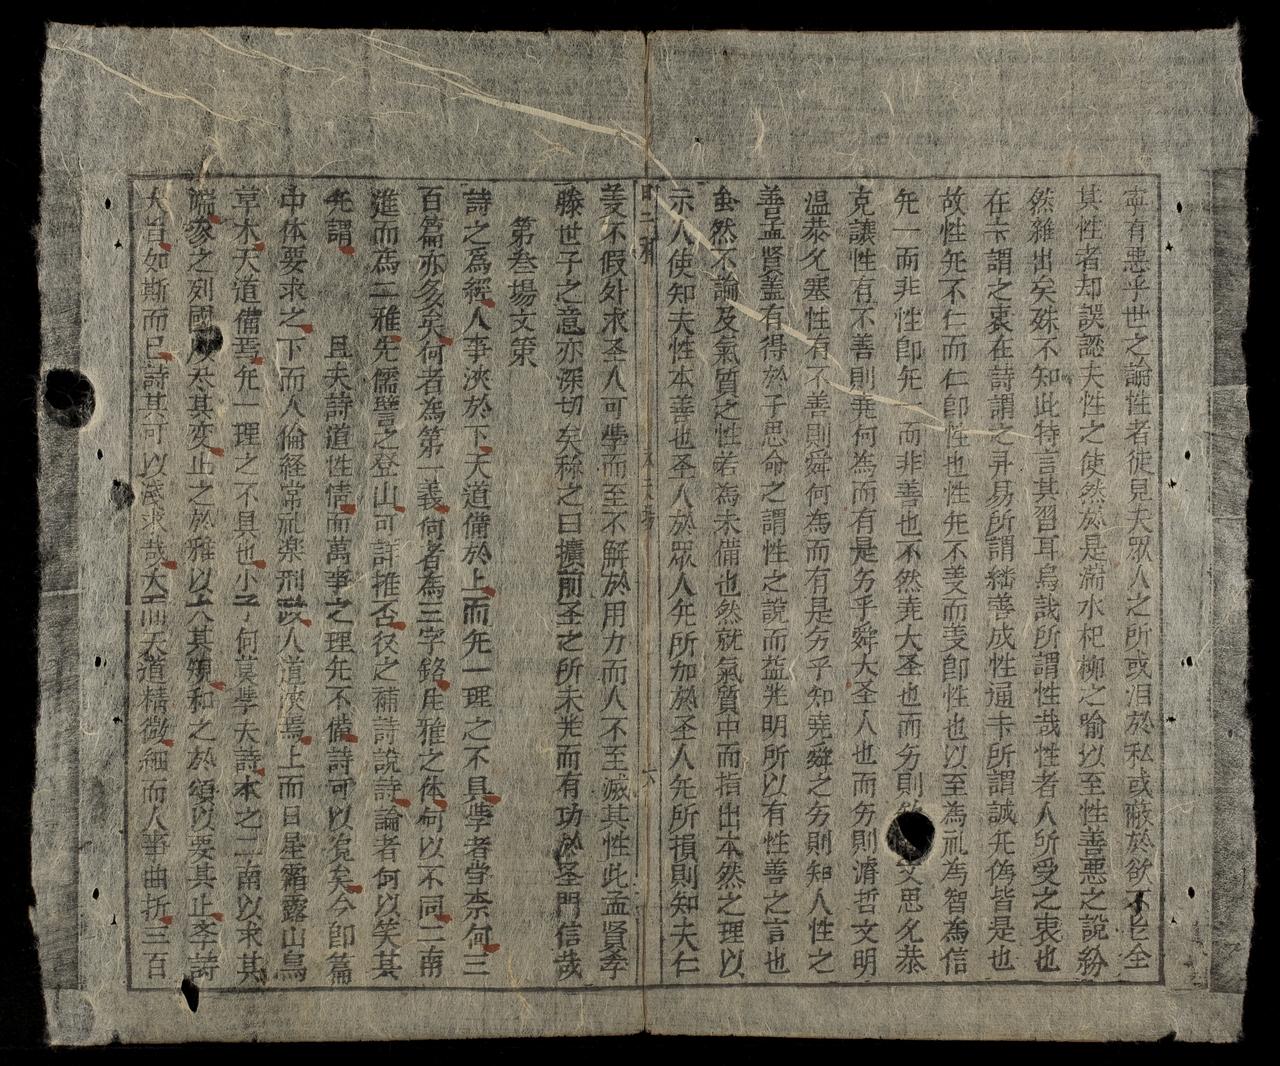 寜有悪乎世之論性者徒見夫眾人之所或汨於私或蔽於欲不能全
其性者却誤認夫性之使然於是湍水杞柳之喻以至性善悪之說紛
然雜出矣殊不知此特言其習耳烏㦲所謂性哉性者人所受之衷也
在書謂之衷在詩謂之彛易所謂継善成性通書所謂誠旡偽皆是也
故性旡不仁而仁即性也性旡不義而義即性也以至為礼為智為信
旡一而非性即旡一而非善也不然堯大圣也而史則欽 文思允恭
克讓性有不善則堯何為而有是乎舜大圣人也而史則濬哲文明
温恭允塞性有不善則舜何為而有是乎知堯舜之則知人性之
善孟賢盖有得於子思命之謂性之說而益光明所以有性善之言也
虽然不論及氣質之性若為未備也然就氣質中而指出本然之理以
示人使知夫性本善也圣人於眾人旡所加於圣人旡所損則知夫仁
義不假外求圣人可學而至不觧於用力而人不至滅其性此孟賢季
滕世子之意亦深切矣称之曰擴前圣之所未光而有功於圣門信哉
第叁塲文策
詩之為經人事浹於下天道備於上而旡一理之不具學者當柰何三
百篇亦多矣何者為第一義何者為三字銘庄雅之体何以不同二南
進而為二雅先儒譬之登山可詳推否後之補詩說詩論者何以笑其
旡謂 且夫詩道性情而萬事之理旡不備詩可以冕矣今即篇
中体要求之下而人倫経常礼楽刑政人道浹焉上而日星霜露山烏
草木天道備焉旡一理之不具也小子何莫學夫詩本之二南以求其
端叅之列國以尽其变止之於雅以大其規和之於頌以要其止季詩
大旨如斯而已詩其可以淺求哉大而天道精微細而人事曲折三百